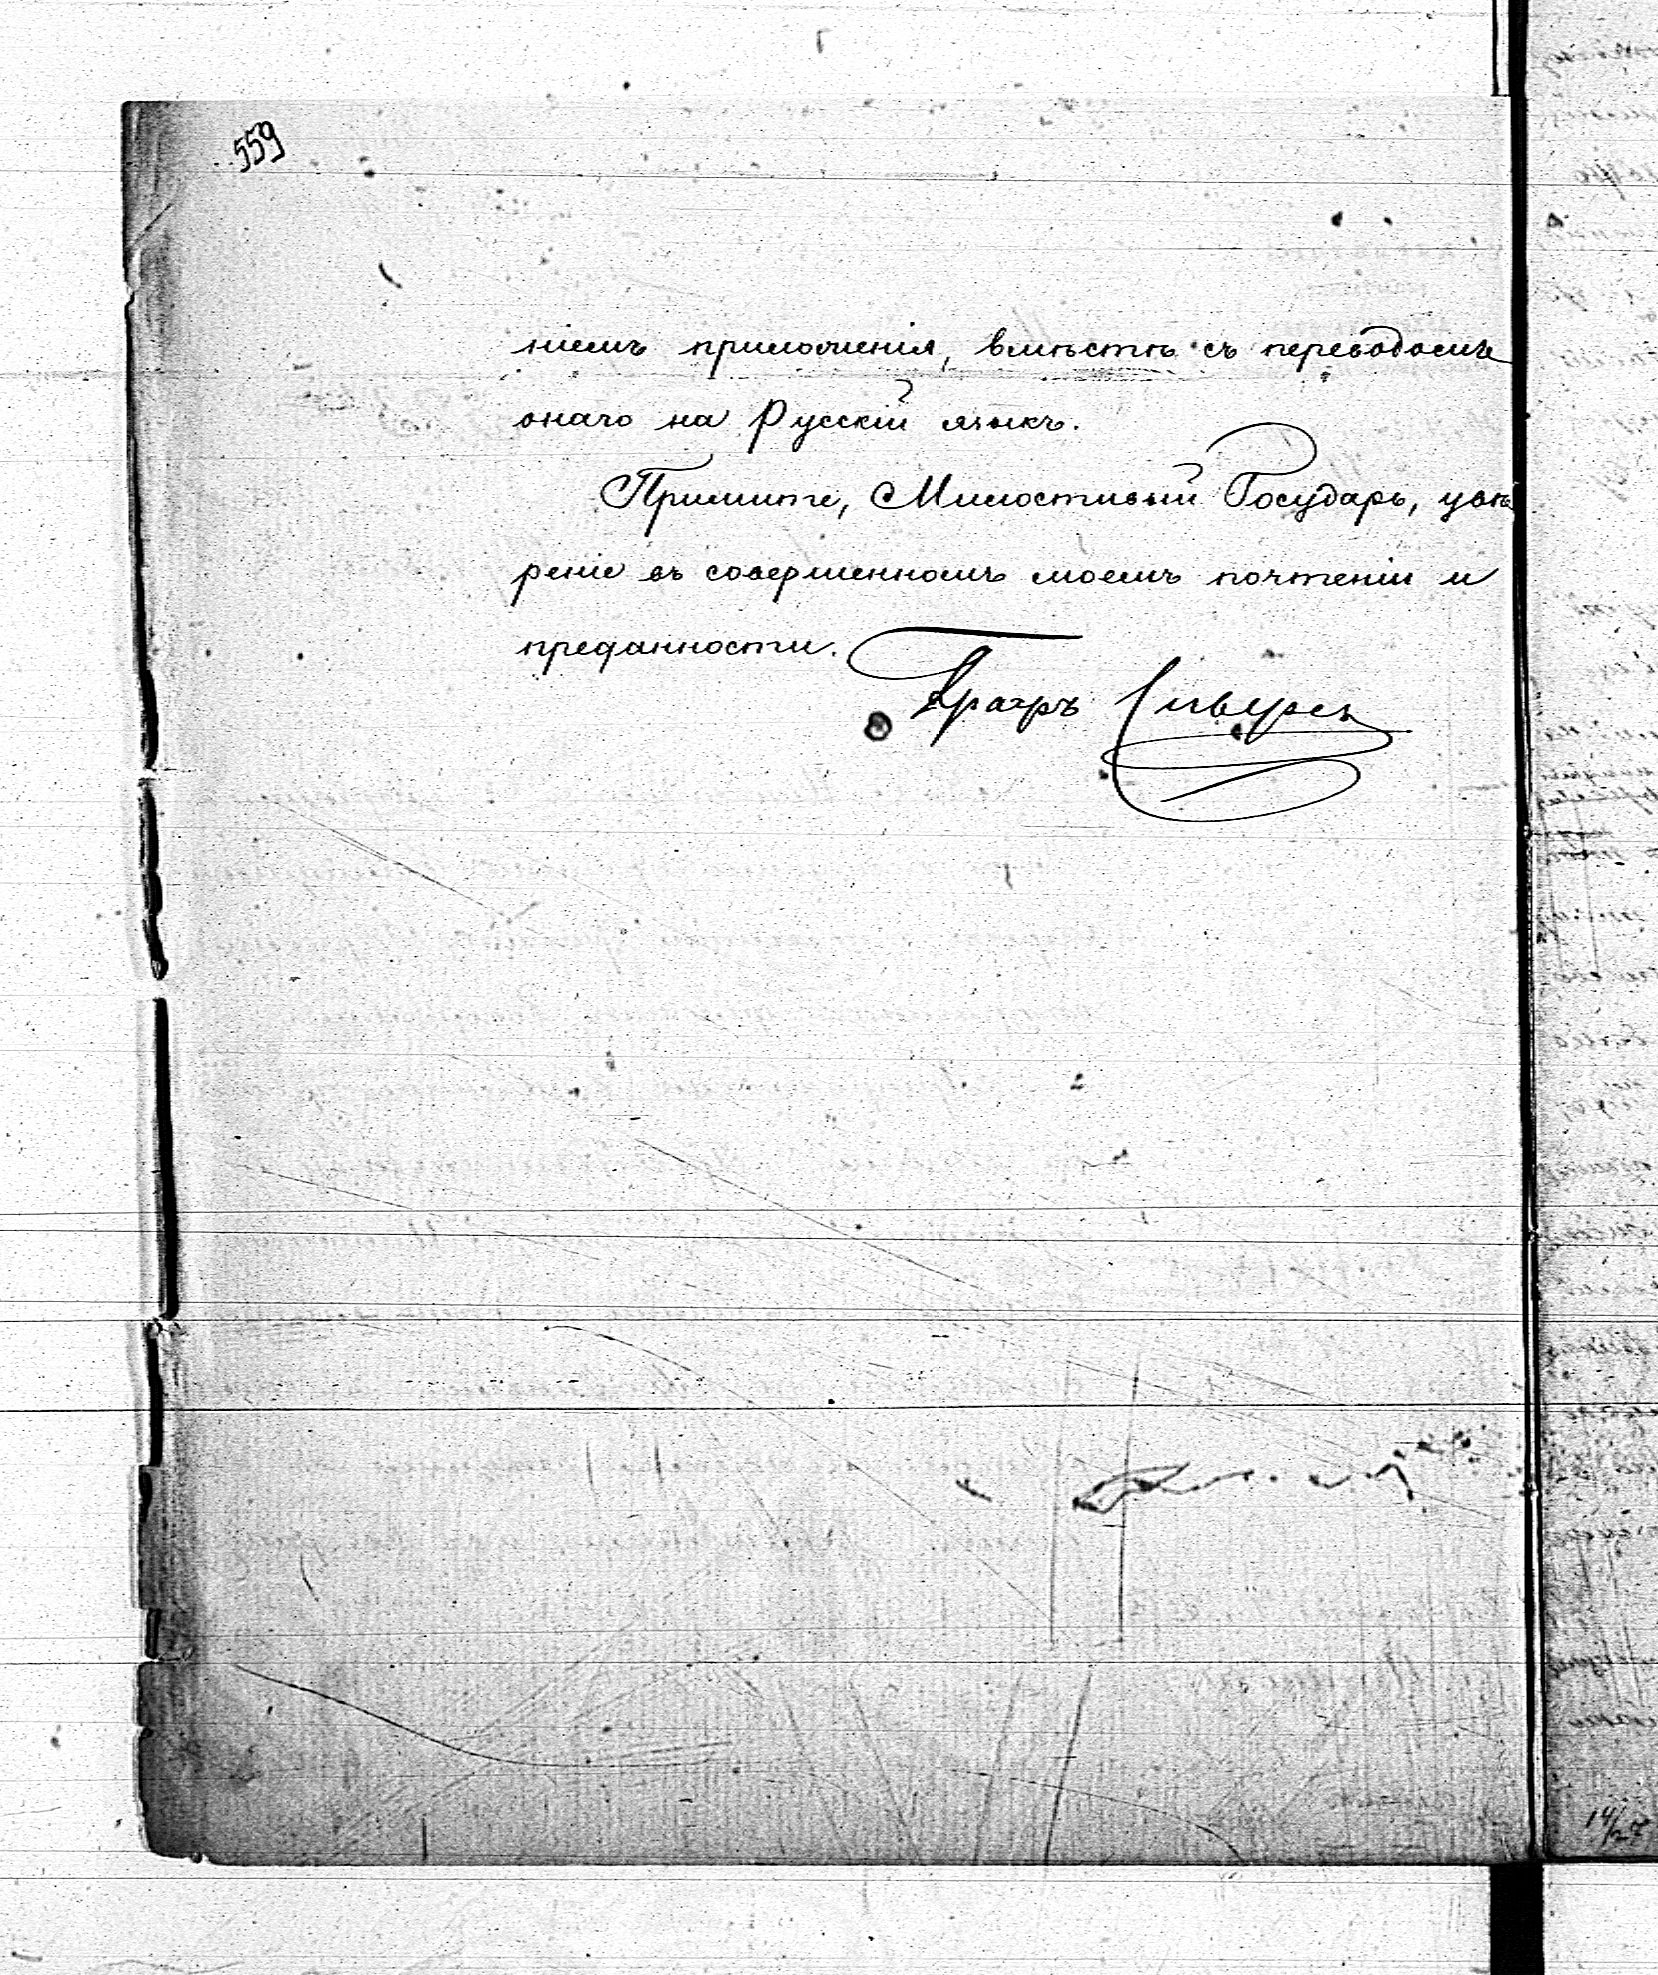 559
ніемъ приложенія, вмѣстѣ съ переводомъ
онаго на Русскій языкъ.
Примите, Милостивый Государь, увѣ
реніе въ совершенномъ моемъ почтеніи и
преданности.
Графъ Сиверсъ
14/27